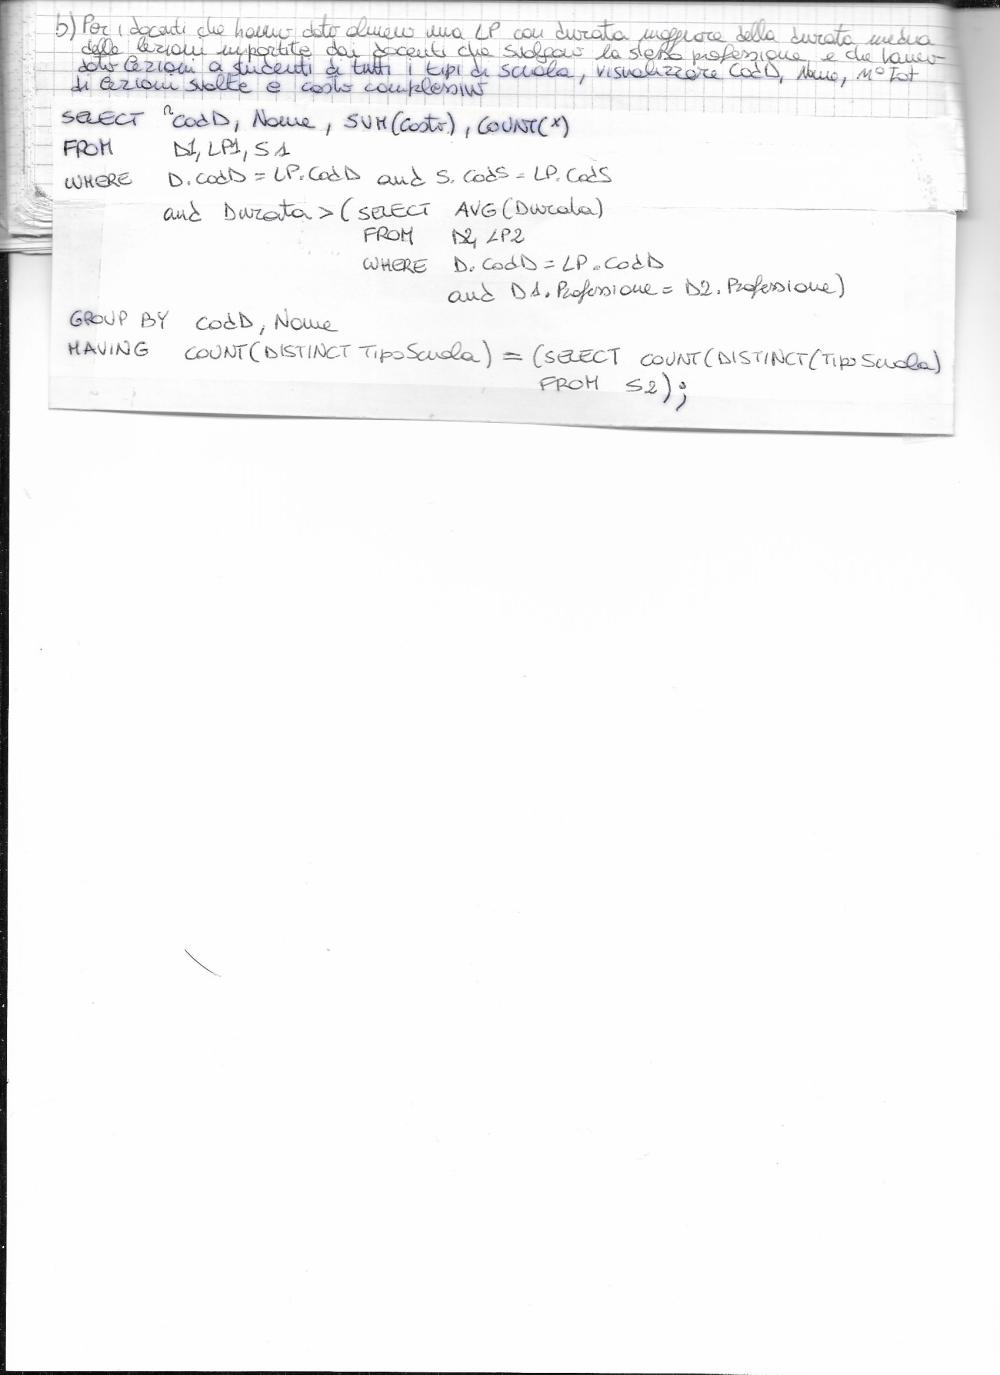 b) Per i docenti che hanno dato almeno una LP con durata maggiore della durata media
delle lezioni impartite dai docenti che svolgono la stessa professione, e che hanno
dato lezioni a studenti di tutti i tipi di scuola, visualizzare CodD, Nome, N° Tot
di lezioni svolte e costo complessivo
SELECT CodD, Nome, SUM(Costo), COUNT(*)
FROM D1, LP1, S1
WHERE D.CodD = LP.CodD and S.CodS = LP.CodS
and Durata > (SELECT AVG(Durata)
FROM D2, LP2
WHERE D.CodD = LP.CodD
and D1.Professione = D2.Professione)
GROUP BY CodD, Nome
HAVING COUNT(DISTINCT TipoScuola) = (SELECT COUNT(DISTINCT(TipoScuola)
FROM S2);